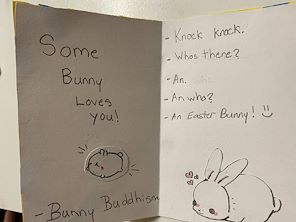 Some
Bunny
Loves
you!
- Bunny Buddhism
- Knock knock.
- Whos there?
- An.
- An who?
- An Easter Bunny! :)